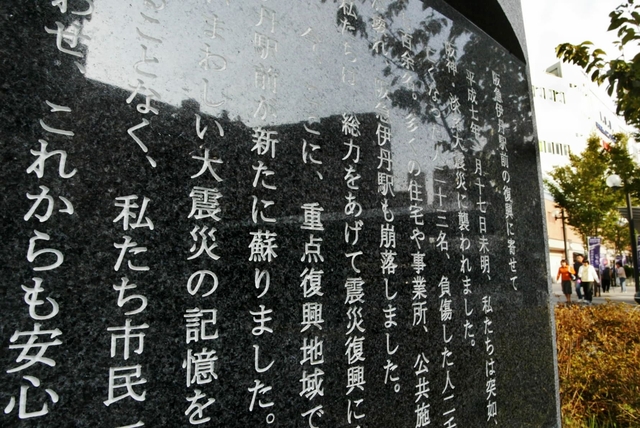 阪急伊丹駅前の復興に寄せて
平成七年 月十七日未明、私たちは突如、
阪神・淡路大震災に襲われました。
十三名、負傷した人二千
の住宅や事業所、公共施
伊丹駅も崩落しました。
私たちは、総力をあげて震災復興に
ここに、重点復興地域で
丹駅前が新たに蘇りました。
まわしい大震災の記憶を
ことなく、私たち市民一
わせ、これからも安心